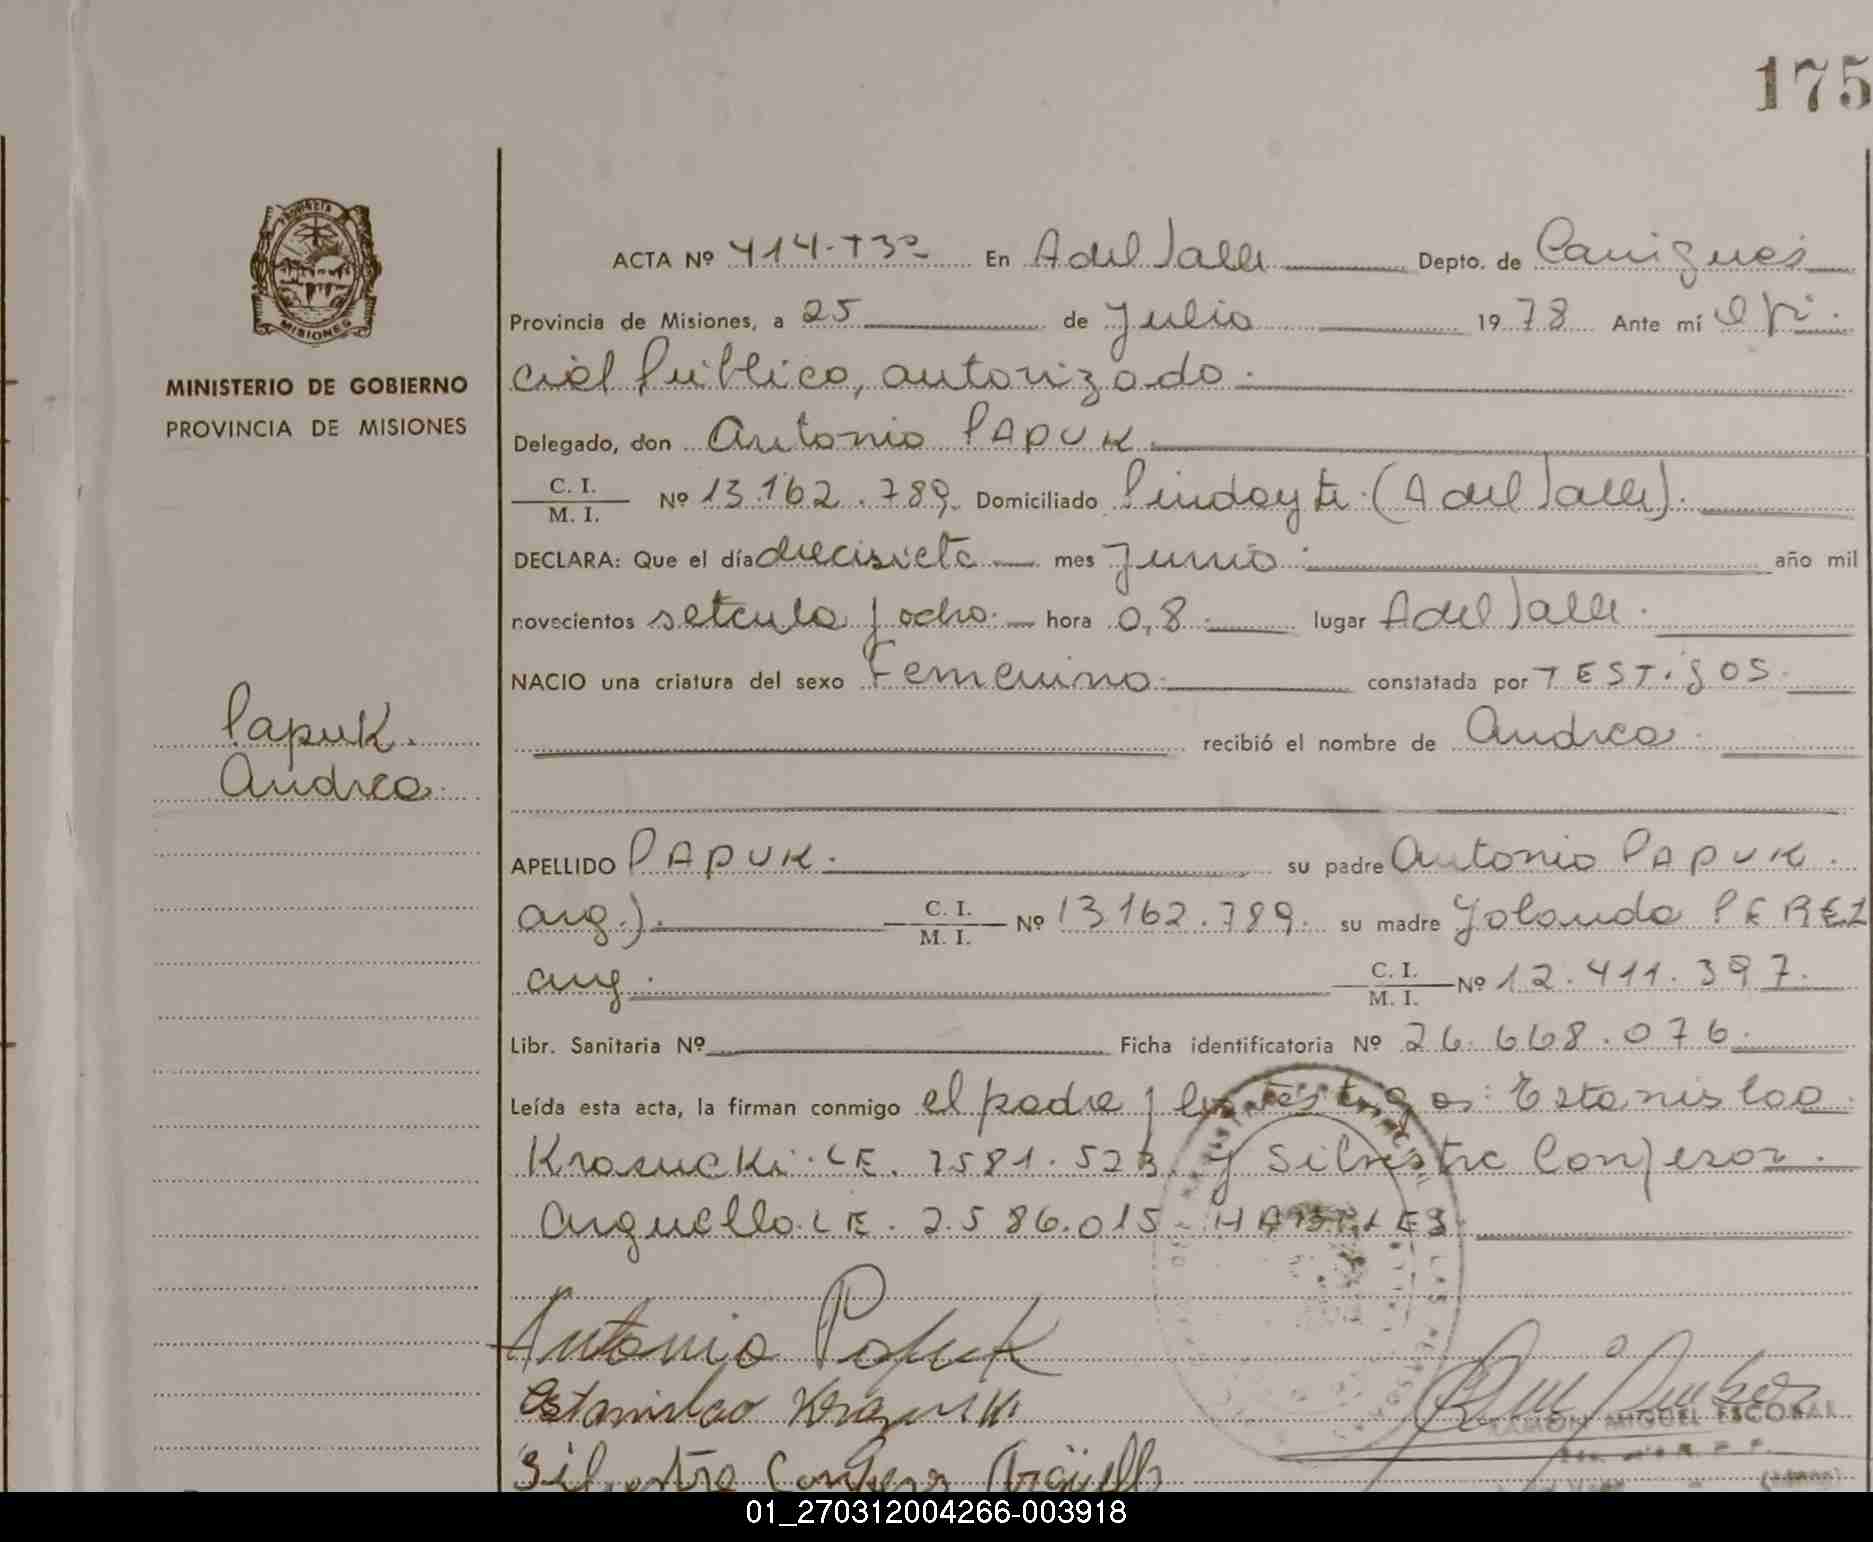 175
PROVINCIA
MISIONES
MINISTERIO DE GOBIERNO
PROVINCIA DE MISIONES
Papuk.
Andrea.
ACTA Nº 414-T3º En A del Valle Depto. de Cainguás
Provincia de Misiones, a 25 de Julio 1978 Ante mí Ofi-
cial Público, autorizado.
Delegado, don Antonio PAPUK.
C. I.
M. I. Nº 13.162.789. Domiciliado Pindayti (A del Valle).
DECLARA: Que el día diecisiete mes Junio año mil
novecientos setenta y ocho. hora 0,8. lugar A del Valle.
NACIO una criatura del sexo Femenino. constatada por TESTIGOS.
recibió el nombre de Andrea.
APELLIDO PAPUK. su padre Antonio PAPUK.
arg.). C. I.
M. I. Nº 13.162.789. su madre Yolanda PEREZ
arg. C. I.
M. I. Nº 12.411.397.
Libr. Sanitaria Nº Ficha identificatoria Nº 26.668.076.
Leída esta acta, la firman conmigo el padre y los testigos: Estanislao
Krasucki. LE. 7581.523. y Silvestre Confesor
Arguello. LE. 2.586.015- HABILES.
Antonio Papuk
Estanislao Krasucki
Silvestre Confesor Argüello
RAMON MIGUEL ESCOBAR
01_270312004266-003918